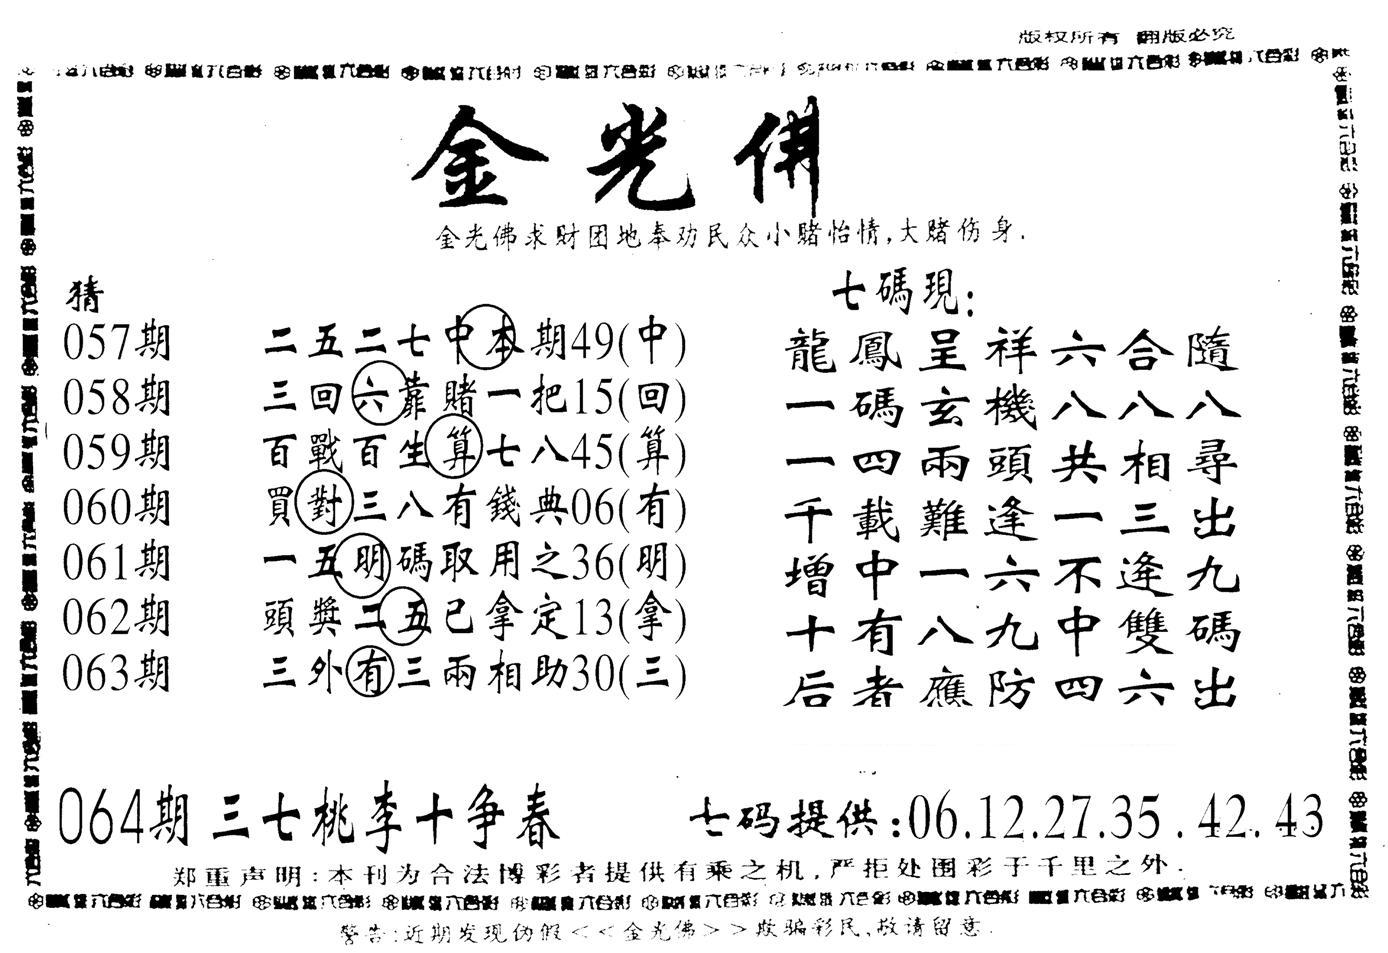 版权所有 翻版必究
金光佛
金光佛求财团地奉劝民众小赌怡情,大赌伤身.
猜
057期 二五二七中本期49(中)
058期 三回六靠賭一把15(回)
059期 百戰百生算七八45(算)
060期 買對三八有錢典06(有)
061期 一五明碼取用之36(明)
062期 頭獎二五已拿定13(拿)
063期 三外有三兩相助30(三)
七碼現:
龍鳳呈祥六合隨
一碼玄機八八八
一四兩頭共相尋
千載難逢一三出
增中一六不逢九
十有八九中雙碼
后者應防四六出
064期 三七桃李十争春
七码提供:06.12.27.35.42.43
郑重声明:本刊为合法博彩者提供有乘之机,严拒处围彩于千里之外.
警告:近期发现伪假<<金光佛>>欺骗彩民,敬请留意.